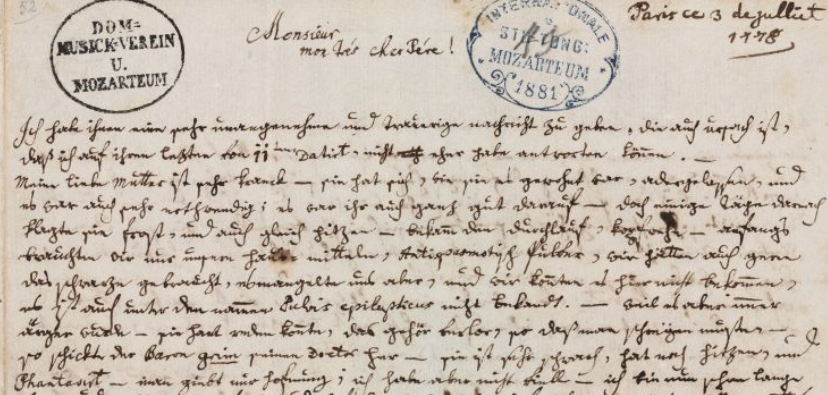 52
DOM=
MUSICK-VEREIN
U.
MOZARTEUM
INTERNATIONALE
STIFTUNG:
MOZARTEUM
1881
45
Paris ce 3 de juillet
1778
Monsieur
mon trés cher Pére!
Ich habe ihnen eine sehr unangenehme und trauerige nachricht zu geben, die auch ursach ist,
daß ich auf ihren letzten von 11:ten Datirt, nicht eher habe antworten können. —
Meine liebe Mutter ist sehr kranck — sie hat sich, wie sie es gewohnt war, adergelassen, und
es war auch sehr nothwendig; es war ihr auch ganz gut darauf — doch einige täge darnach
klagte sie frost, und auch gleich hitzen — bekamm den durchlauf, kopfwehe — anfangs
brauchten wir nur unsere haus mitteln, Antispasmotisch Pulver, wir hätten auch gerne
das schwarze gebraucht, es mangelte uns aber, und wir konten es hier nicht bekommen,
es ist auch unter den nammen Pulvis epilepticus nicht bekandt. — weil es aber immer
ärger wurde — sie hart reden konte, das gehör verlor, so daß man schreien muste —
so schickte der Baron grim seinen Doctor her — sie ist sehr schwach, hat noch hitzen, und
Phantasirt — man giebt mir hofnung; ich habe aber nicht viell — ich bin nun schon lange